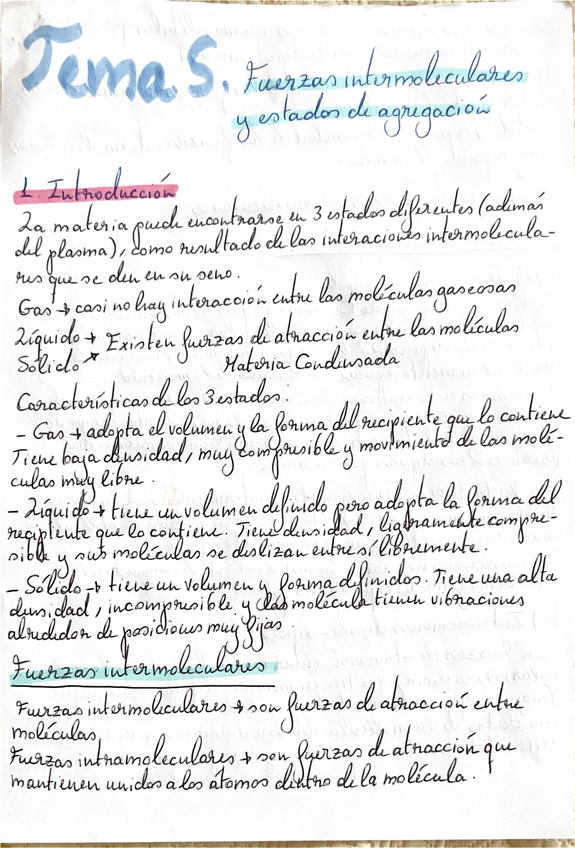 Tema 5. Fuerzas intermoleculares
y estados de agregación
1. Introducción
La materia puede encontrarse en 3 estados diferentes (además
del plasma), como resultado de las interaciones intermolecula-
res que se den en su seno.
Gas → casi no hay interacción entre las moléculas gaseosas
Líquido → Existen fuerzas de atracción entre las moléculas
Sólido ↗ Materia Condensada
Características de los 3 estados.
- Gas → adopta el volumen y la forma del recipiente que lo contiene
Tiene baja densidad, muy compresible y movimiento de las molé-
culas muy libre.
- Líquido → tiene un volumen definido pero adopta la forma del
recipiente que lo contiene. Tiene densidad, ligeramente compre-
sible y sus moléculas se deslizan entre sí libremente.
- Sólido → tiene un volumen y forma definidos. Tiene una alta
densidad, incompresible y las molécula tienen vibraciones
alrededor de posiciones muy fijas.
Fuerzas intermoleculares
Fuerzas intermoleculares → son fuerzas de atracción entre
moléculas.
Fuerzas intramoleculares → son fuerzas de atracción que
mantienen unidos a los átomos dentro de la molécula.